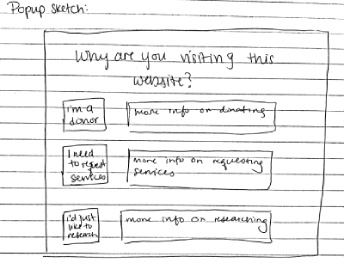 Popup sketch:
Why are you visiting this
website?
I'm a
donor
more info on donating
I need
to request
services
more info on requesting
services
I'd just
like to
research
more info on researching